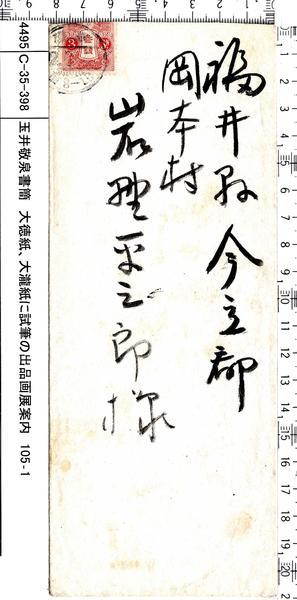 福井县今立郡
岡本村
岩野平三郎様
4495 C-35-398 玉井敬泉書簡 大徳紙、大瀧紙に試筆の出品画展案内 105-1